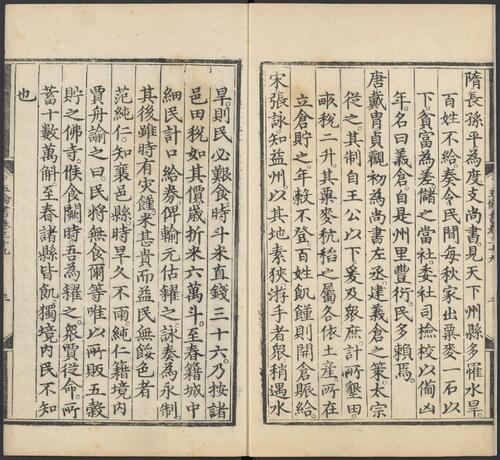 隋長孫平為度支尚書見天下州縣多罹水旱
百姓不給奏令民間每秋家出粟麥一石以
下貧富為差儲之當社委社司檢校以備凶
年名曰義倉自是州里豐衍民多賴焉
唐戴冑貞觀初為尚書左丞建義倉之策太宗
從之其制自王公以下爰及衆庶計所墾田
畝稅二升其粟麥秔稻之屬各依土產所在
立倉貯之年穀不登百姓飢饉則開倉賑給
宋張詠知益州以其地素狹游手者衆稍遇水
旱則民必艱食時斗米直錢三十六乃按諸
邑田稅如其價歲折米六萬斗至春籍城中
細民計口給券俾輸元估糴之詠奏為永制
其後雖時有災饉米甚貴而益民無餒色者
范純仁知襄邑縣時旱久不雨純仁籍境内
賈舟諭之曰民將無食爾等唯以所販五穀
貯之佛寺候食闕時吾為糴之衆賈從命所
蓄十數萬斛至春諸縣皆飢獨境内民不知
也